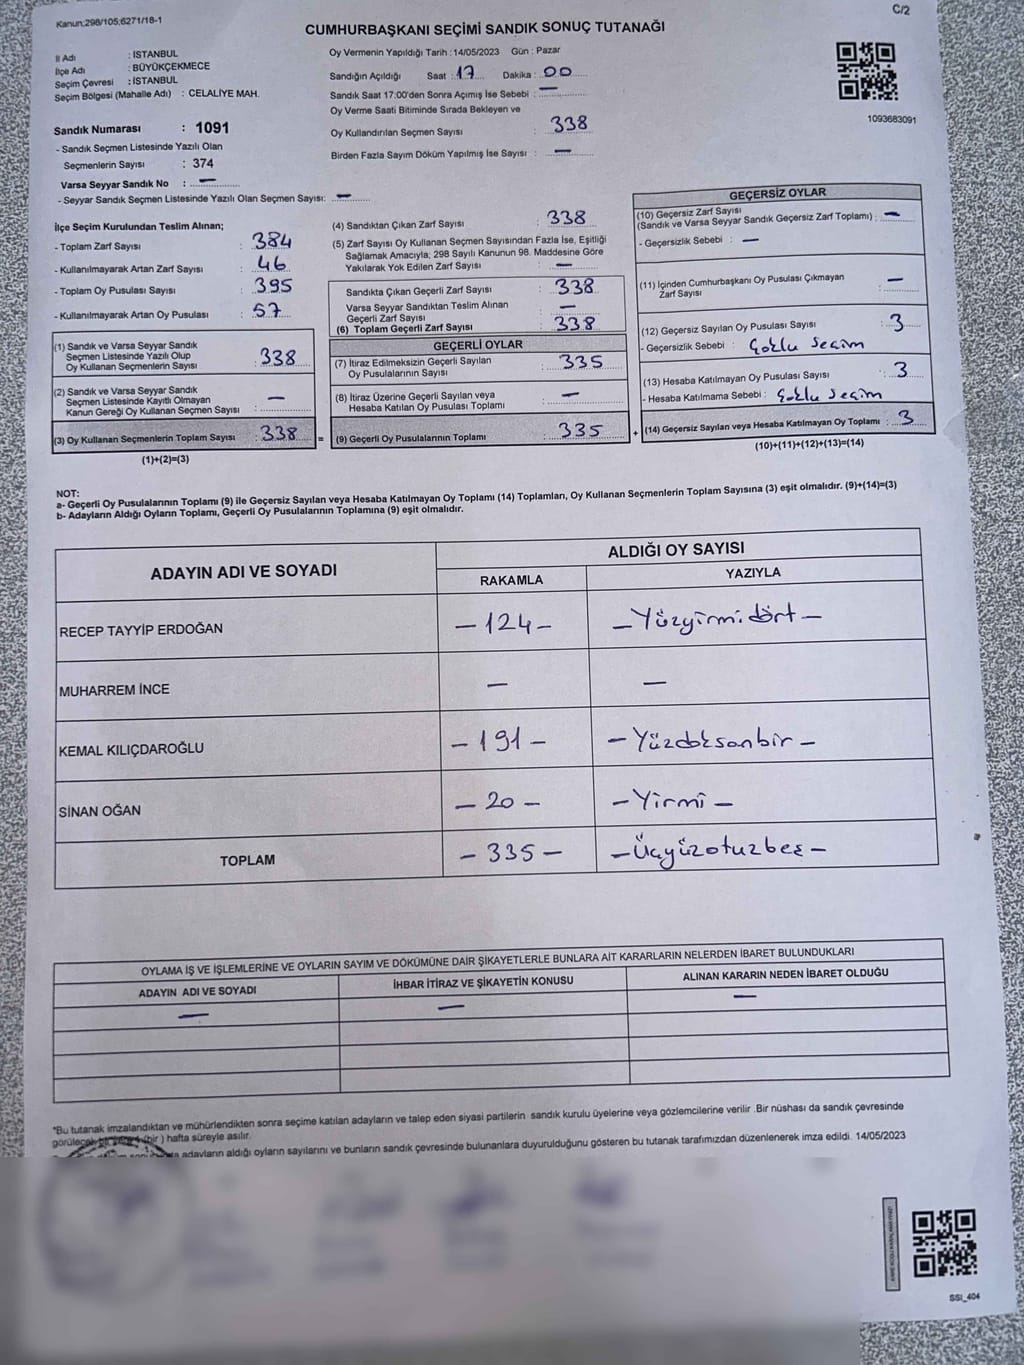 Kanun:298/105;6271/18-1
C/2
CUMHURBAŞKANI SEÇİMİ SANDIK SONUÇ TUTANAĞI
İl Adı : İSTANBUL
İlçe Adı : BÜYÜKÇEKMECE
Seçim Çevresi : İSTANBUL
Seçim Bölgesi (Mahalle Adı) : CELALİYE MAH.
Sandık Numarası : 1091
- Sandık Seçmen Listesinde Yazılı Olan
Seçmenlerin Sayısı : 374
Varsa Seyyar Sandık No : —
- Seyyar Sandık Seçmen Listesinde Yazılı Olan Seçmen Sayısı: —
Oy Vermenin Yapıldığı Tarih : 14/05/2023 Gün : Pazar
Sandığın Açıldığı Saat : 17 Dakika : 00
Sandık Saat 17:00'den Sonra Açımış İse Sebebi : —
Oy Verme Saati Bitiminde Sırada Bekleyen ve
Oy Kullandırılan Seçmen Sayısı : 338
Birden Fazla Sayım Döküm Yapılmış İse Sayısı : —
1093683091
İlçe Seçim Kurulundan Teslim Alınan;
- Toplam Zarf Sayısı : 384
- Kullanılmayarak Artan Zarf Sayısı : 46
- Toplam Oy Pusulası Sayısı : 395
- Kullanılmayarak Artan Oy Pusulası : 57
(1) Sandık ve Varsa Seyyar Sandık
Seçmen Listesinde Yazılı Olup
Oy Kullanan Seçmenlerin Sayısı : 338
(2) Sandık ve Varsa Seyyar Sandık
Seçmen Listesinde Kayıtlı Olmayan
Kanun Gereği Oy Kullanan Seçmen Sayısı : —
(3) Oy Kullanan Seçmenlerin Toplam Sayısı : 338
(1)+(2)=(3)
(4) Sandıktan Çıkan Zarf Sayısı : 338
(5) Zarf Sayısı Oy Kullanan Seçmen Sayısından Fazla İse, Eşitliği
Sağlamak Amacıyla; 298 Sayılı Kanunun 98. Maddesine Göre
Yakılarak Yok Edilen Zarf Sayısı : —
Sandıkta Çıkan Geçerli Zarf Sayısı : 338
Varsa Seyyar Sandıktan Teslim Alınan
Geçerli Zarf Sayısı : —
(6) Toplam Geçerli Zarf Sayısı : 338
GEÇERLİ OYLAR
(7) İtiraz Edilmeksizin Geçerli Sayılan
Oy Pusulalarının Sayısı : 335
(8) İtiraz Üzerine Geçerli Sayılan veya
Hesaba Katılan Oy Pusulası Toplamı : —
= (9) Geçerli Oy Pusulalarının Toplamı : 335
GEÇERSİZ OYLAR
(10) Geçersiz Zarf Sayısı
(Sandık ve Varsa Seyyar Sandık Geçersiz Zarf Toplamı) : —
- Geçersizlik Sebebi : —
(11) İçinden Cumhurbaşkanı Oy Pusulası Çıkmayan
Zarf Sayısı : —
(12) Geçersiz Sayılan Oy Pusulası Sayısı : 3
- Geçersizlik Sebebi : Çoklu Seçim
(13) Hesaba Katılmayan Oy Pusulası Sayısı : 3
- Hesaba Katılmama Sebebi : Çoklu Seçim
+ (14) Geçersiz Sayılan veya Hesaba Katılmayan Oy Toplamı : 3
(10)+(11)+(12)+(13)=(14)
NOT:
a- Geçerli Oy Pusulalarının Toplamı (9) ile Geçersiz Sayılan veya Hesaba Katılmayan Oy Toplamı (14) Toplamları, Oy Kullanan Seçmenlerin Toplam Sayısına (3) eşit olmalıdır. (9)+(14)=(3)
b- Adayların Aldığı Oyların Toplamı, Geçerli Oy Pusulalarının Toplamına (9) eşit olmalıdır.
ADAYIN ADI VE SOYADI
ALDIĞI OY SAYISI
RAKAMLA YAZIYLA
RECEP TAYYİP ERDOĞAN — 124 — — Yüzyirmidört —
MUHARREM İNCE — —
KEMAL KILIÇDAROĞLU — 191 — — Yüzdoksanbir —
SİNAN OĞAN — 20 — — Yirmi —
TOPLAM — 335 — — Üçyüzotuzbeş —
OYLAMA İŞ VE İŞLEMLERİNE VE OYLARIN SAYIM VE DÖKÜMÜNE DAİR ŞİKAYETLERLE BUNLARA AİT KARARLARIN NELERDEN İBARET BULUNDUKLARI
ADAYIN ADI VE SOYADI İHBAR İTİRAZ VE ŞİKAYETİN KONUSU ALINAN KARARIN NEDEN İBARET OLDUĞU
— — —
*Bu tutanak imzalandıktan ve mühürlendikten sonra seçime katılan adayların ve talep eden siyasi partilerin sandık kurulu üyelerine veya gözlemcilerine verilir .Bir nüshası da sandık çevresinde
(bir ) hafta süreyle asılır.
adayların aldığı oyların sayılarını ve bunların sandık çevresinde bulunanlara duyurulduğunu gösteren bu tutanak tarafımızdan düzenlenerek imza edildi. 14/05/2023
SSI_404